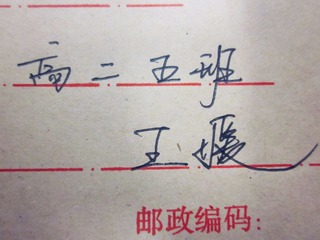 高二五班
王
邮政编码: